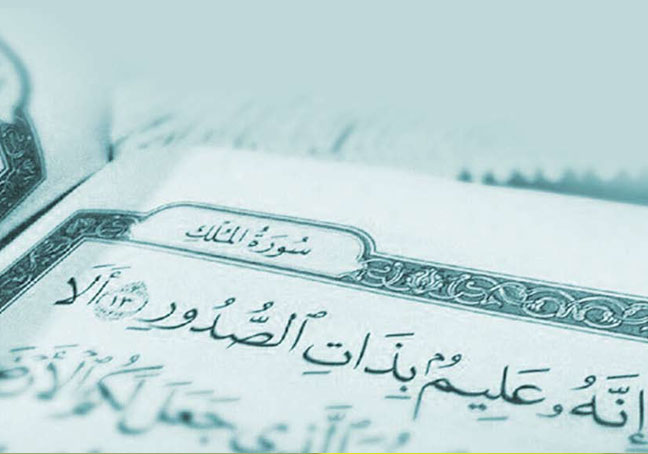 سُورَةُ المُلْكِ
إِنَّهُۥ عَلِيمُۢ بِذَاتِ ٱلصُّدُورِ ١٣ أَلَا
ٱلَّذِى جَعَلَ لَكُمُ ٱلْأَرْضَ